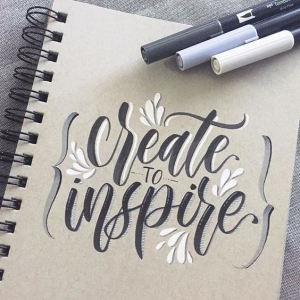 create
TO
inspire.